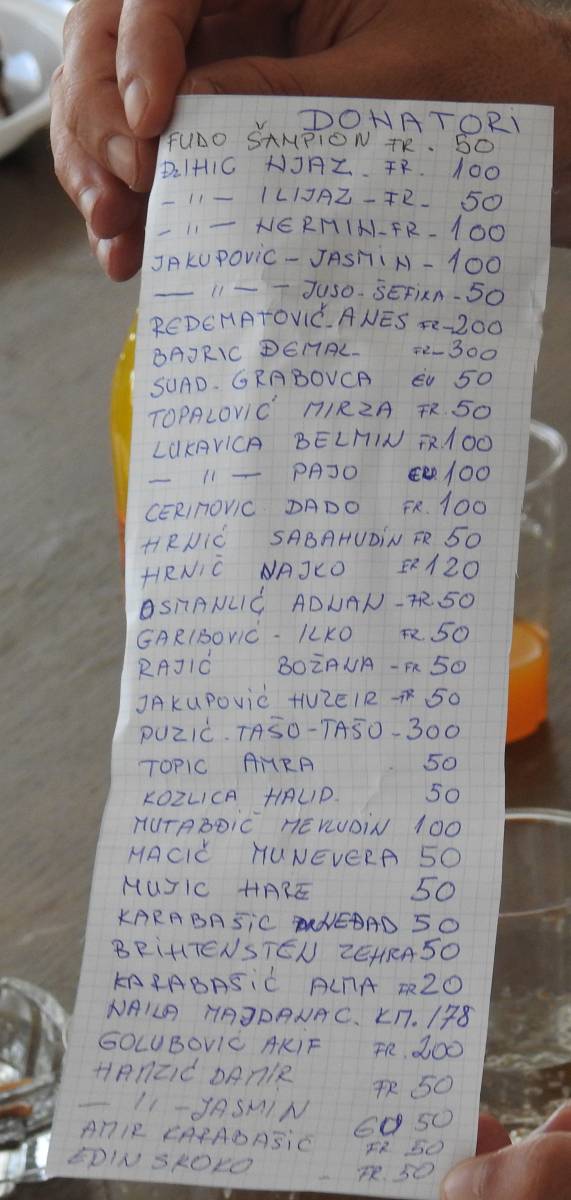 DONATORI
FUDO ŠAMPION FR. 50
DZIHIC NJAZ. FR. 100
- " - ILIJAZ - FR- 50
- " - NERMIN-FR- 100
JAKUPOVIC - JASMIN - 100
- " - - JUSO-ŠEFIKA - 50
REDEMATOVIČ-ANES FR-200
BAJRIC DEMAL- FR-300
SUAD. GRABOVCA EU 50
TOPALOVIĆ MIRZA FR.50
LUKAVICA BELMIN FR.100
- " - PAJO EU 100
CERIMOVIC DADO FR. 100
HRNIĆ SABAHUDIN FR 50
HRNIĆ NAJKO FR 120
OSMANLIĆ ADNAN - FR.50
GARIBOVIĆ - ILKO FR. 50
RAJIĆ BOŽANA - FR 50
JAKUPOVIĆ HUZEIR - FR 50
PUZIĆ. TAŠO-TAŠO - 300
TOPIC AMRA 50
KOZLICA HALID. 50
MUTABĐIĆ MEVLUDIN 100
MACIČ MUNEVERA 50
MUJIC HARE 50
KARABAŠIC NEĐAD 50
BRIHTENSTEN ZEHRA 50
KARABAŠIĆ ALMA FR 20
NAILA MAJDANAC. KM. 178
GOLUBOVIĆ AKIF FR. 200
HAMZIĆ DAMIR FR 50
- " - JASMIN EU 50
AMIR KARABAŠIC FR 50
EDIN SKOKO - FR. 50